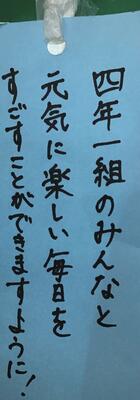 四年一組のみんなと
元気に楽しい毎日を
すごすことができますように!